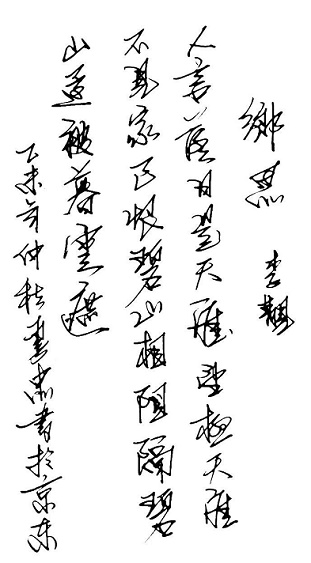 鄉思 李覯
人言落日是天涯望極天涯
不見家已恨碧山相阻隔碧
山還被暮雲遮
乙未年仲秋書於京东